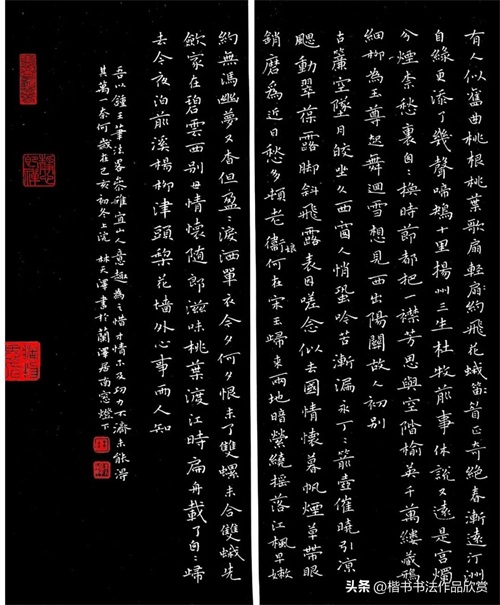 有人似舊曲桃根桃葉歌扇輕約飛花蛾眉正奇絕春漸遠汀洲
自綠更添了幾聲啼鴂十里揚州三生杜牧前事休說又還是宮燭
分煙柰愁裏匆:換時節都把一襟芳思與空階榆莢千萬縷藏鴉
細柳為玉尊起舞迴雪想見西出陽關故人初別
古簾空墜月皎坐久西窗人悄蛩吟苦漸漏永丁:箭壺催曉引涼
颸動翠葆露脚斜飛表因嗟念似去國情懷暮帆煙草帶眼
銷磨為近日愁多頓老衛娘何在宋玉歸來兩地暗縈繞搖落江楓早嫩
約無馮幽夢又杳但盈:淚洒單衣今夕何夕恨未了雙螺未合雙蛾先
斂家在碧雲西別母情懷隨郎滋味桃葉渡江時扁舟載了匆:歸
去今夜泊前溪楊柳津頭梨花墻外心事兩人知
吾以鍾王筆法畧參雜宜山人意趣為之惜才情不及功力不濟未能得
其萬一奈何歲在己亥初冬上浣 林天澤書於蘭澤居南窓燈下
头条 @楷书书法作品欣赏